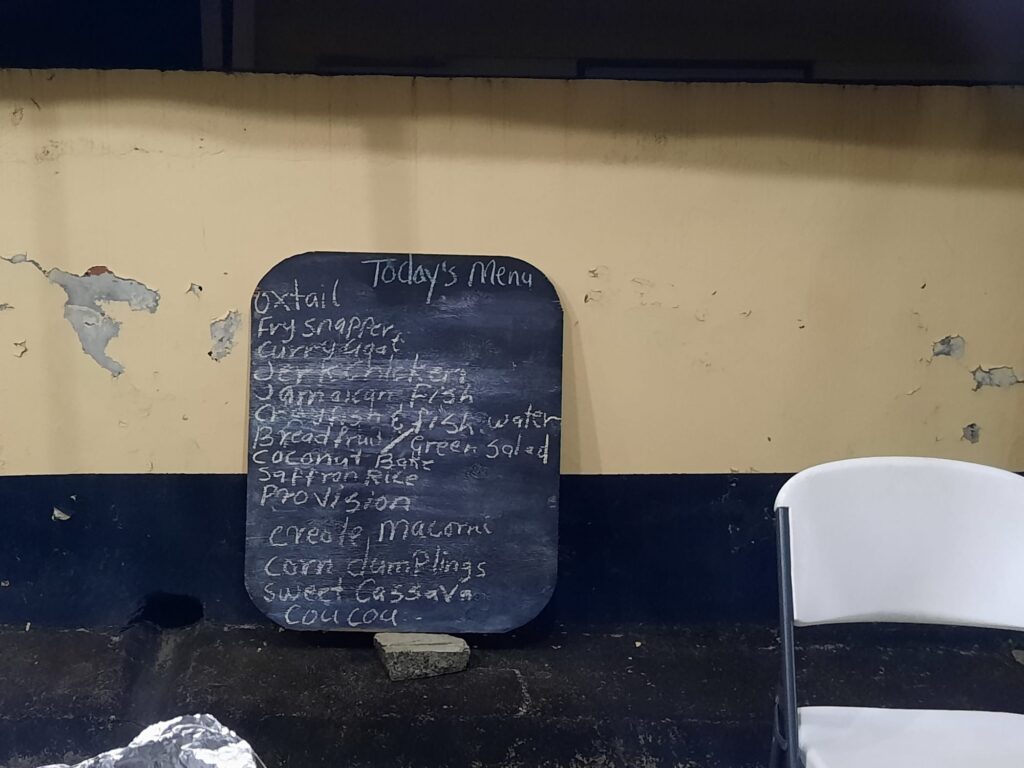 Today's Menu
Oxtail
Fry Snapper
Curry Goat
Jerk Chicken
Jamaican Fish
Crayfish & fish water
Breadfruit Green Salad
Coconut Bake
Saffron Rice
Provision
creole Macorni
corn dumplings
Sweet Cassava
Coucou